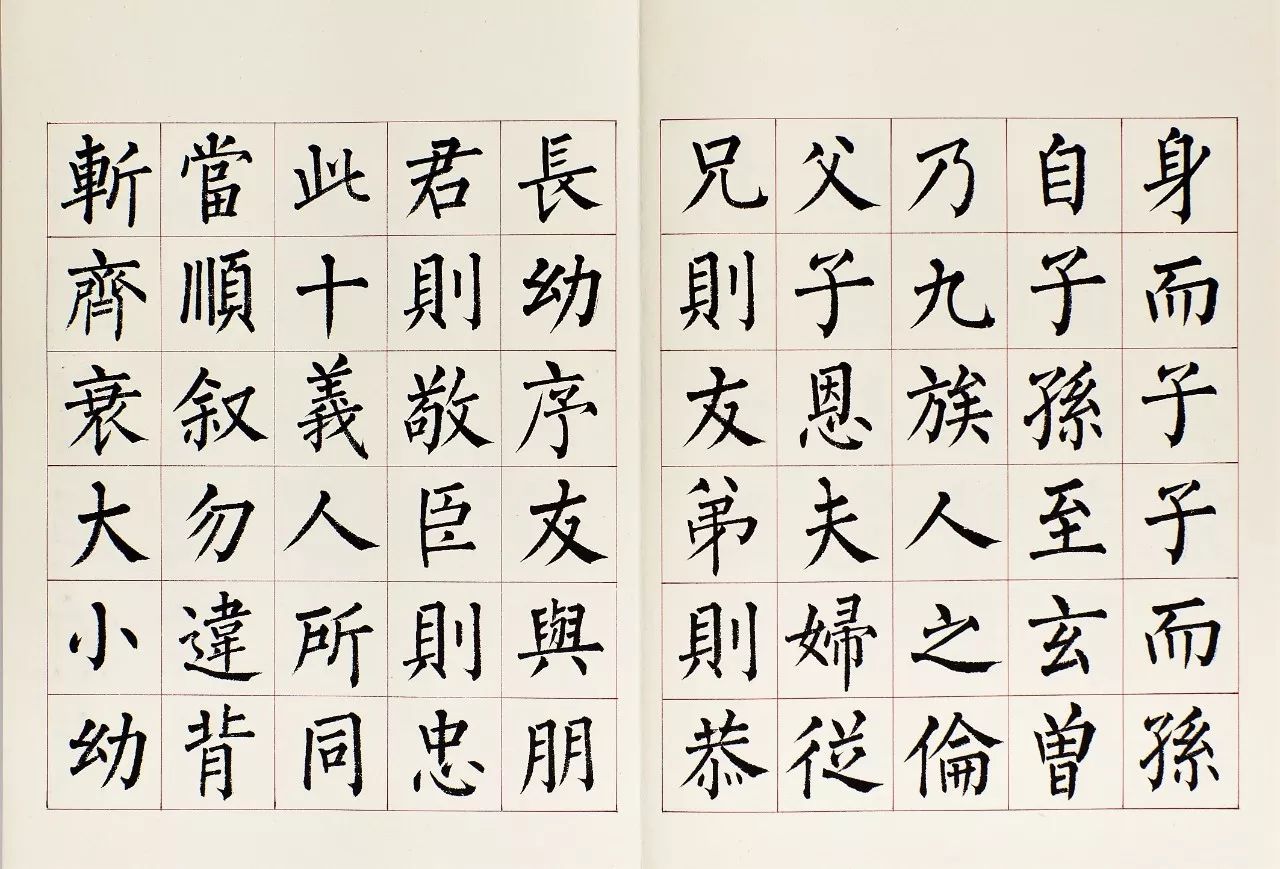 身而子子而孫
自子孫至玄曾
乃九族人之倫
父子恩夫婦從
兄則友弟則恭
長幼序友與朋
君則敬臣則忠
此十義人所同
當順叙勿違背
斬齊衰大小幼